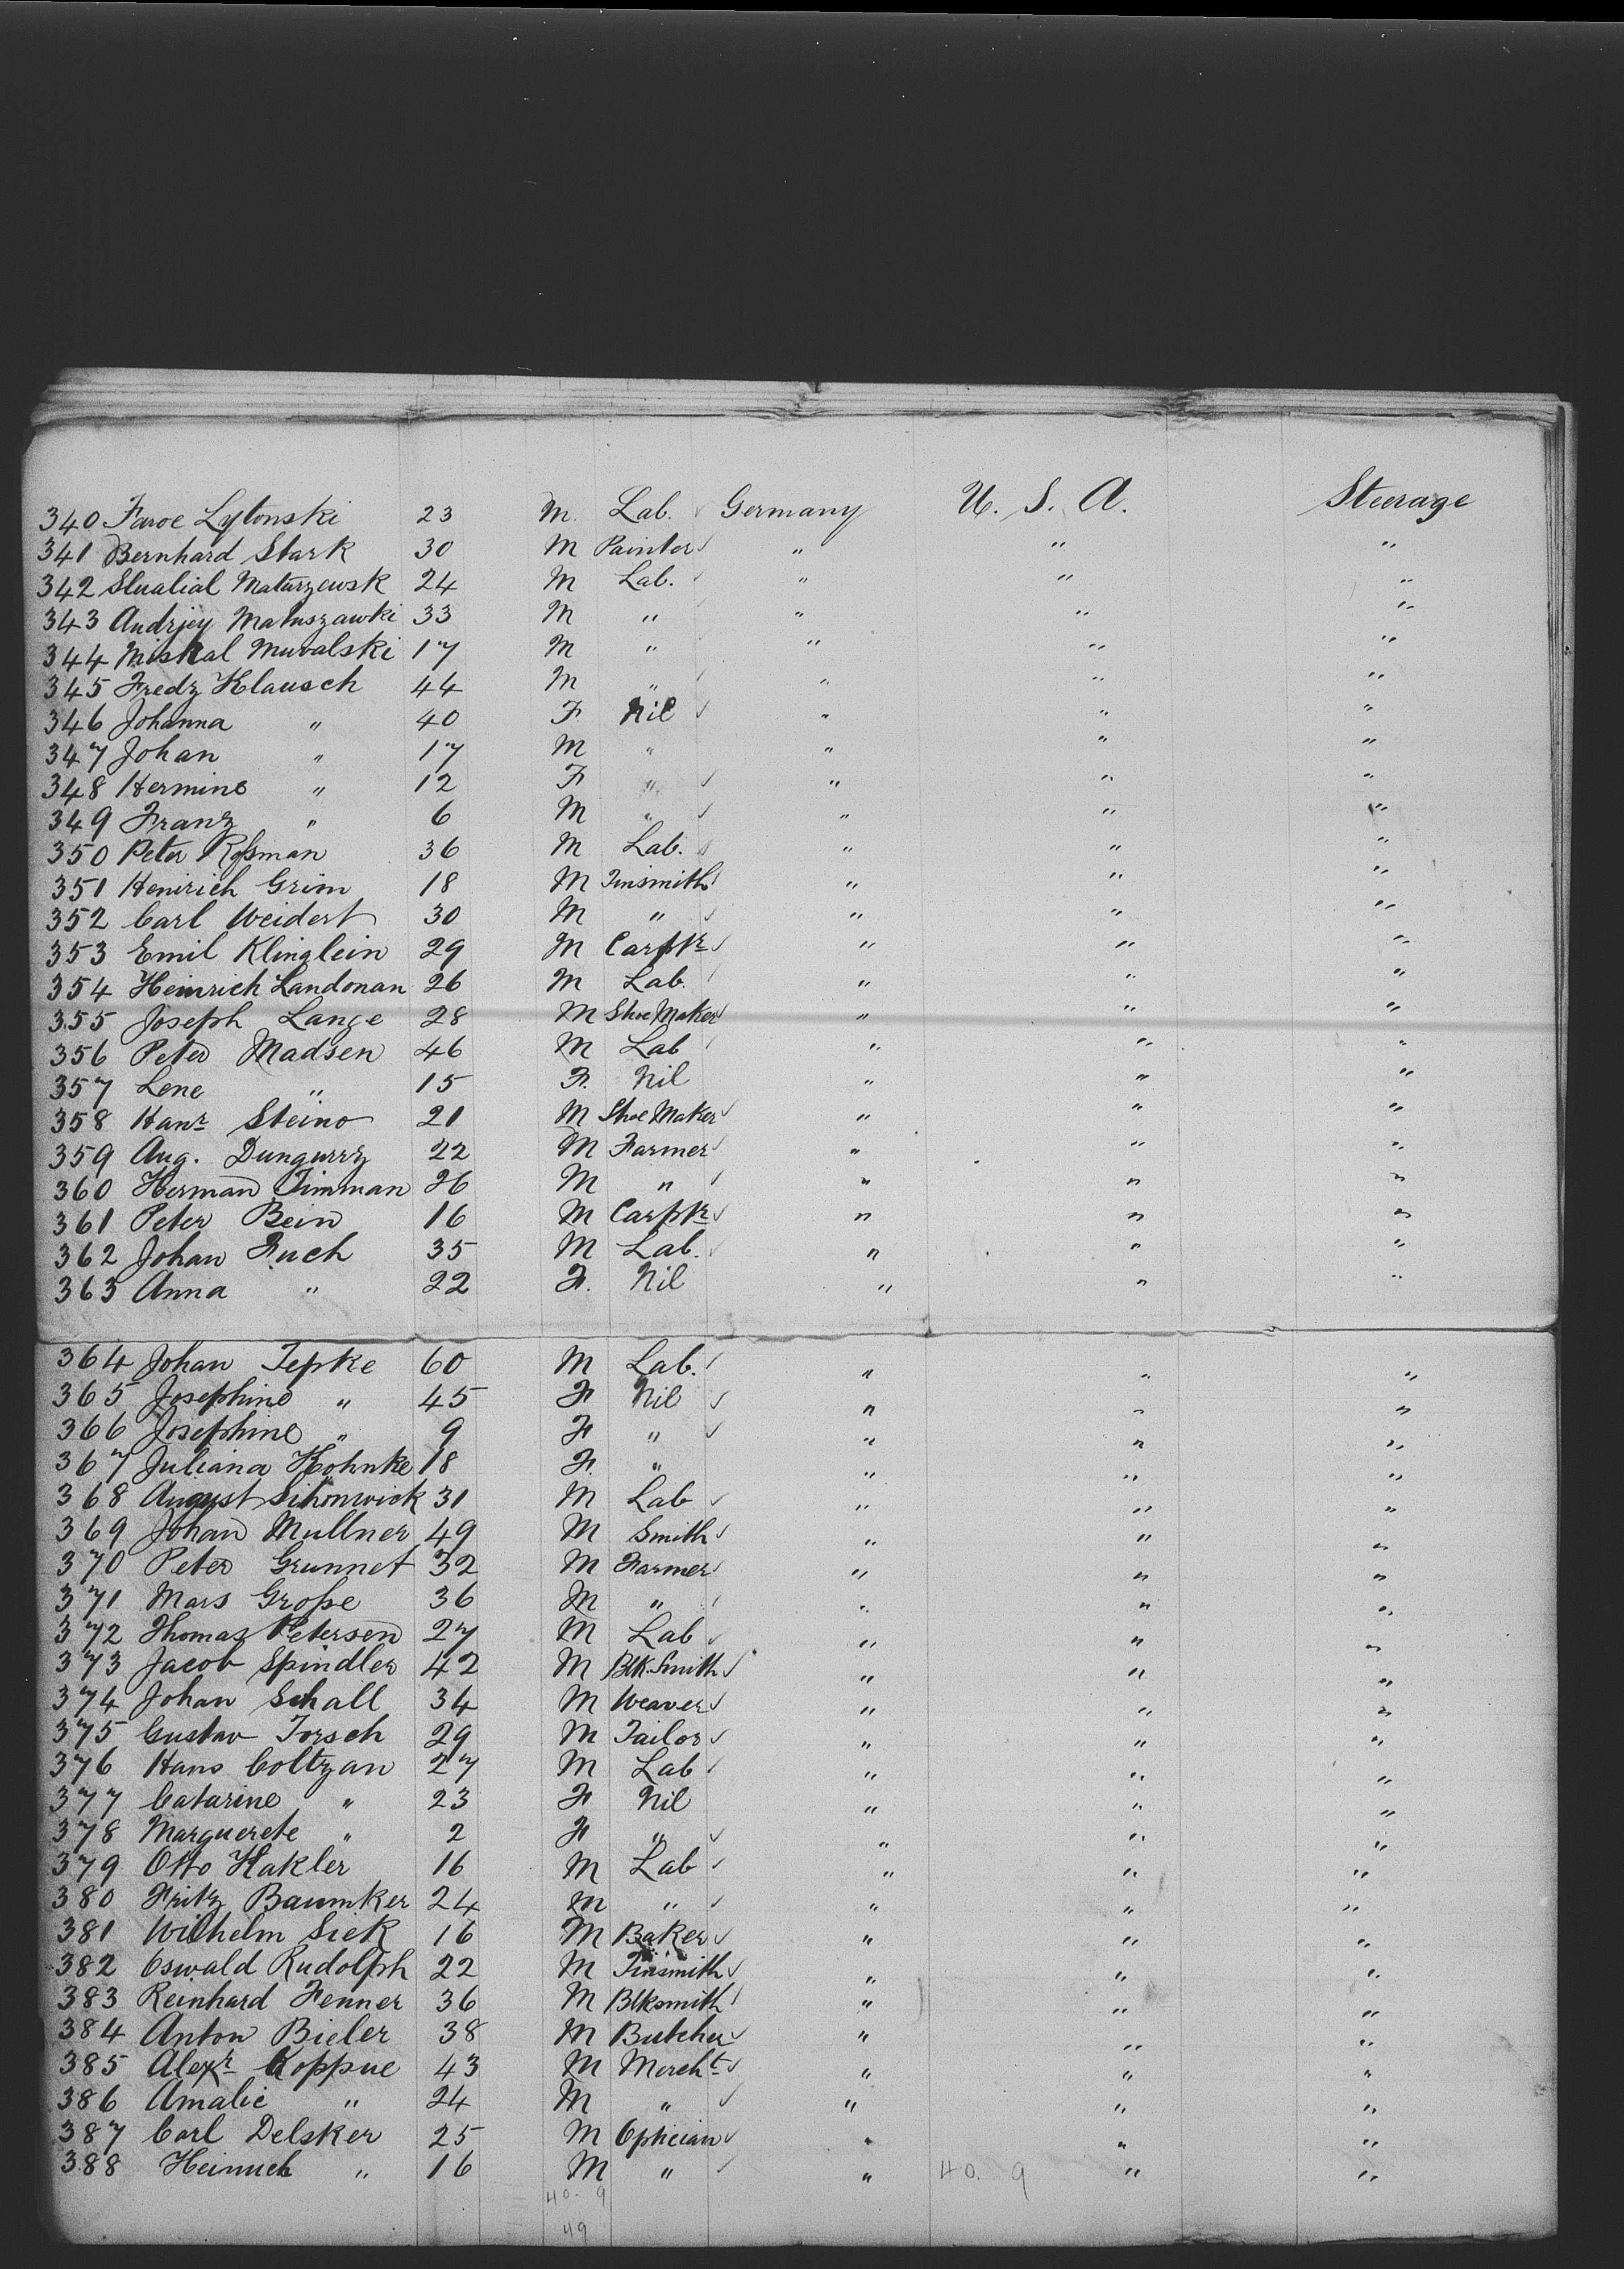 340 Faroe Lylonski 23 M. Lab. Germany U. S. A. Steerage
341 Bernhard Stark 30 M Painter " " "
342 Slualial Maturzewsk 24 M Lab. " " "
343 Andrjey Matuszawki 33 M " " " "
344 Miskal Muvalski 17 M " " " "
345 Fredz Klausch 44 M " " " "
346 Johanna " 40 F Nil " " "
347 Johan " 17 M " " " "
348 Hermine " 12 F " " " "
349 Franz " 6 M " " " "
350 Peter Roſsman 36 M Lab. " " "
351 Henirich Grim 18 M Tinsmith " " "
352 Carl Weidert 30 M " " " "
353 Emil Klinglein 29 M Carptr " " "
354 Heinrich Landonan 26 M Lab. " " "
355 Joseph Lange 28 M Shoe Maker " " "
356 Peter Madsen 46 M Lab " " "
357 Lene " 15 F. Nil " " "
358 Hanr Steino 21 M Shoe Maker " " "
359 Aug. Dungurrz 22 M Farmer " " "
360 Herman Timman 26 M " " " "
361 Peter Bein 16 M Carptr " " "
362 Johan Fuch 35 M Lab. " " "
363 Anna " 22 F. Nil " " "
364 Johan Tepke 60 M Lab. " " "
365 Josephine " 45 F Nil " " "
366 Josephine " 9 F " " " "
367 Juliana Kohnke 18 F. " " " "
368 August Sihonwick 31 M Lab " " "
369 Johan Mullner 49 M Smith " " "
370 Peter Grunnet 32 M Farmer " " "
371 Mars Groſse 36 M " " " "
372 Thomas Petersen 27 M Lab " " "
373 Jacob Spindler 42 M Blk.Smith " " "
374 Johan Schall 34 M Weaver " " "
375 Gustav Torsch 29 M Tailor " " "
376 Hans Coltzan 27 M Lab " " "
377 Catarine " 23 F Nil " " "
378 Marguerete " 2 F " " " "
379 Otto Hakler 16 M Lab " " "
380 Fritz Baumker 24 M " " " "
381 Wilhelm Siek 16 M Baker " " "
382 Oswald Rudolph 22 M Tinsmith " " "
383 Reinhard Fenner 36 M Blksmith " " "
384 Anton Bieler 38 M Butcher " " "
385 Alexr Koppue 43 M Mercht " " "
386 Amalie " 24 M " " " "
387 Carl Delsker 25 M Opticìan " " "
388 Heinrich " 16 M " " 40. 9 " "
40. 9
49